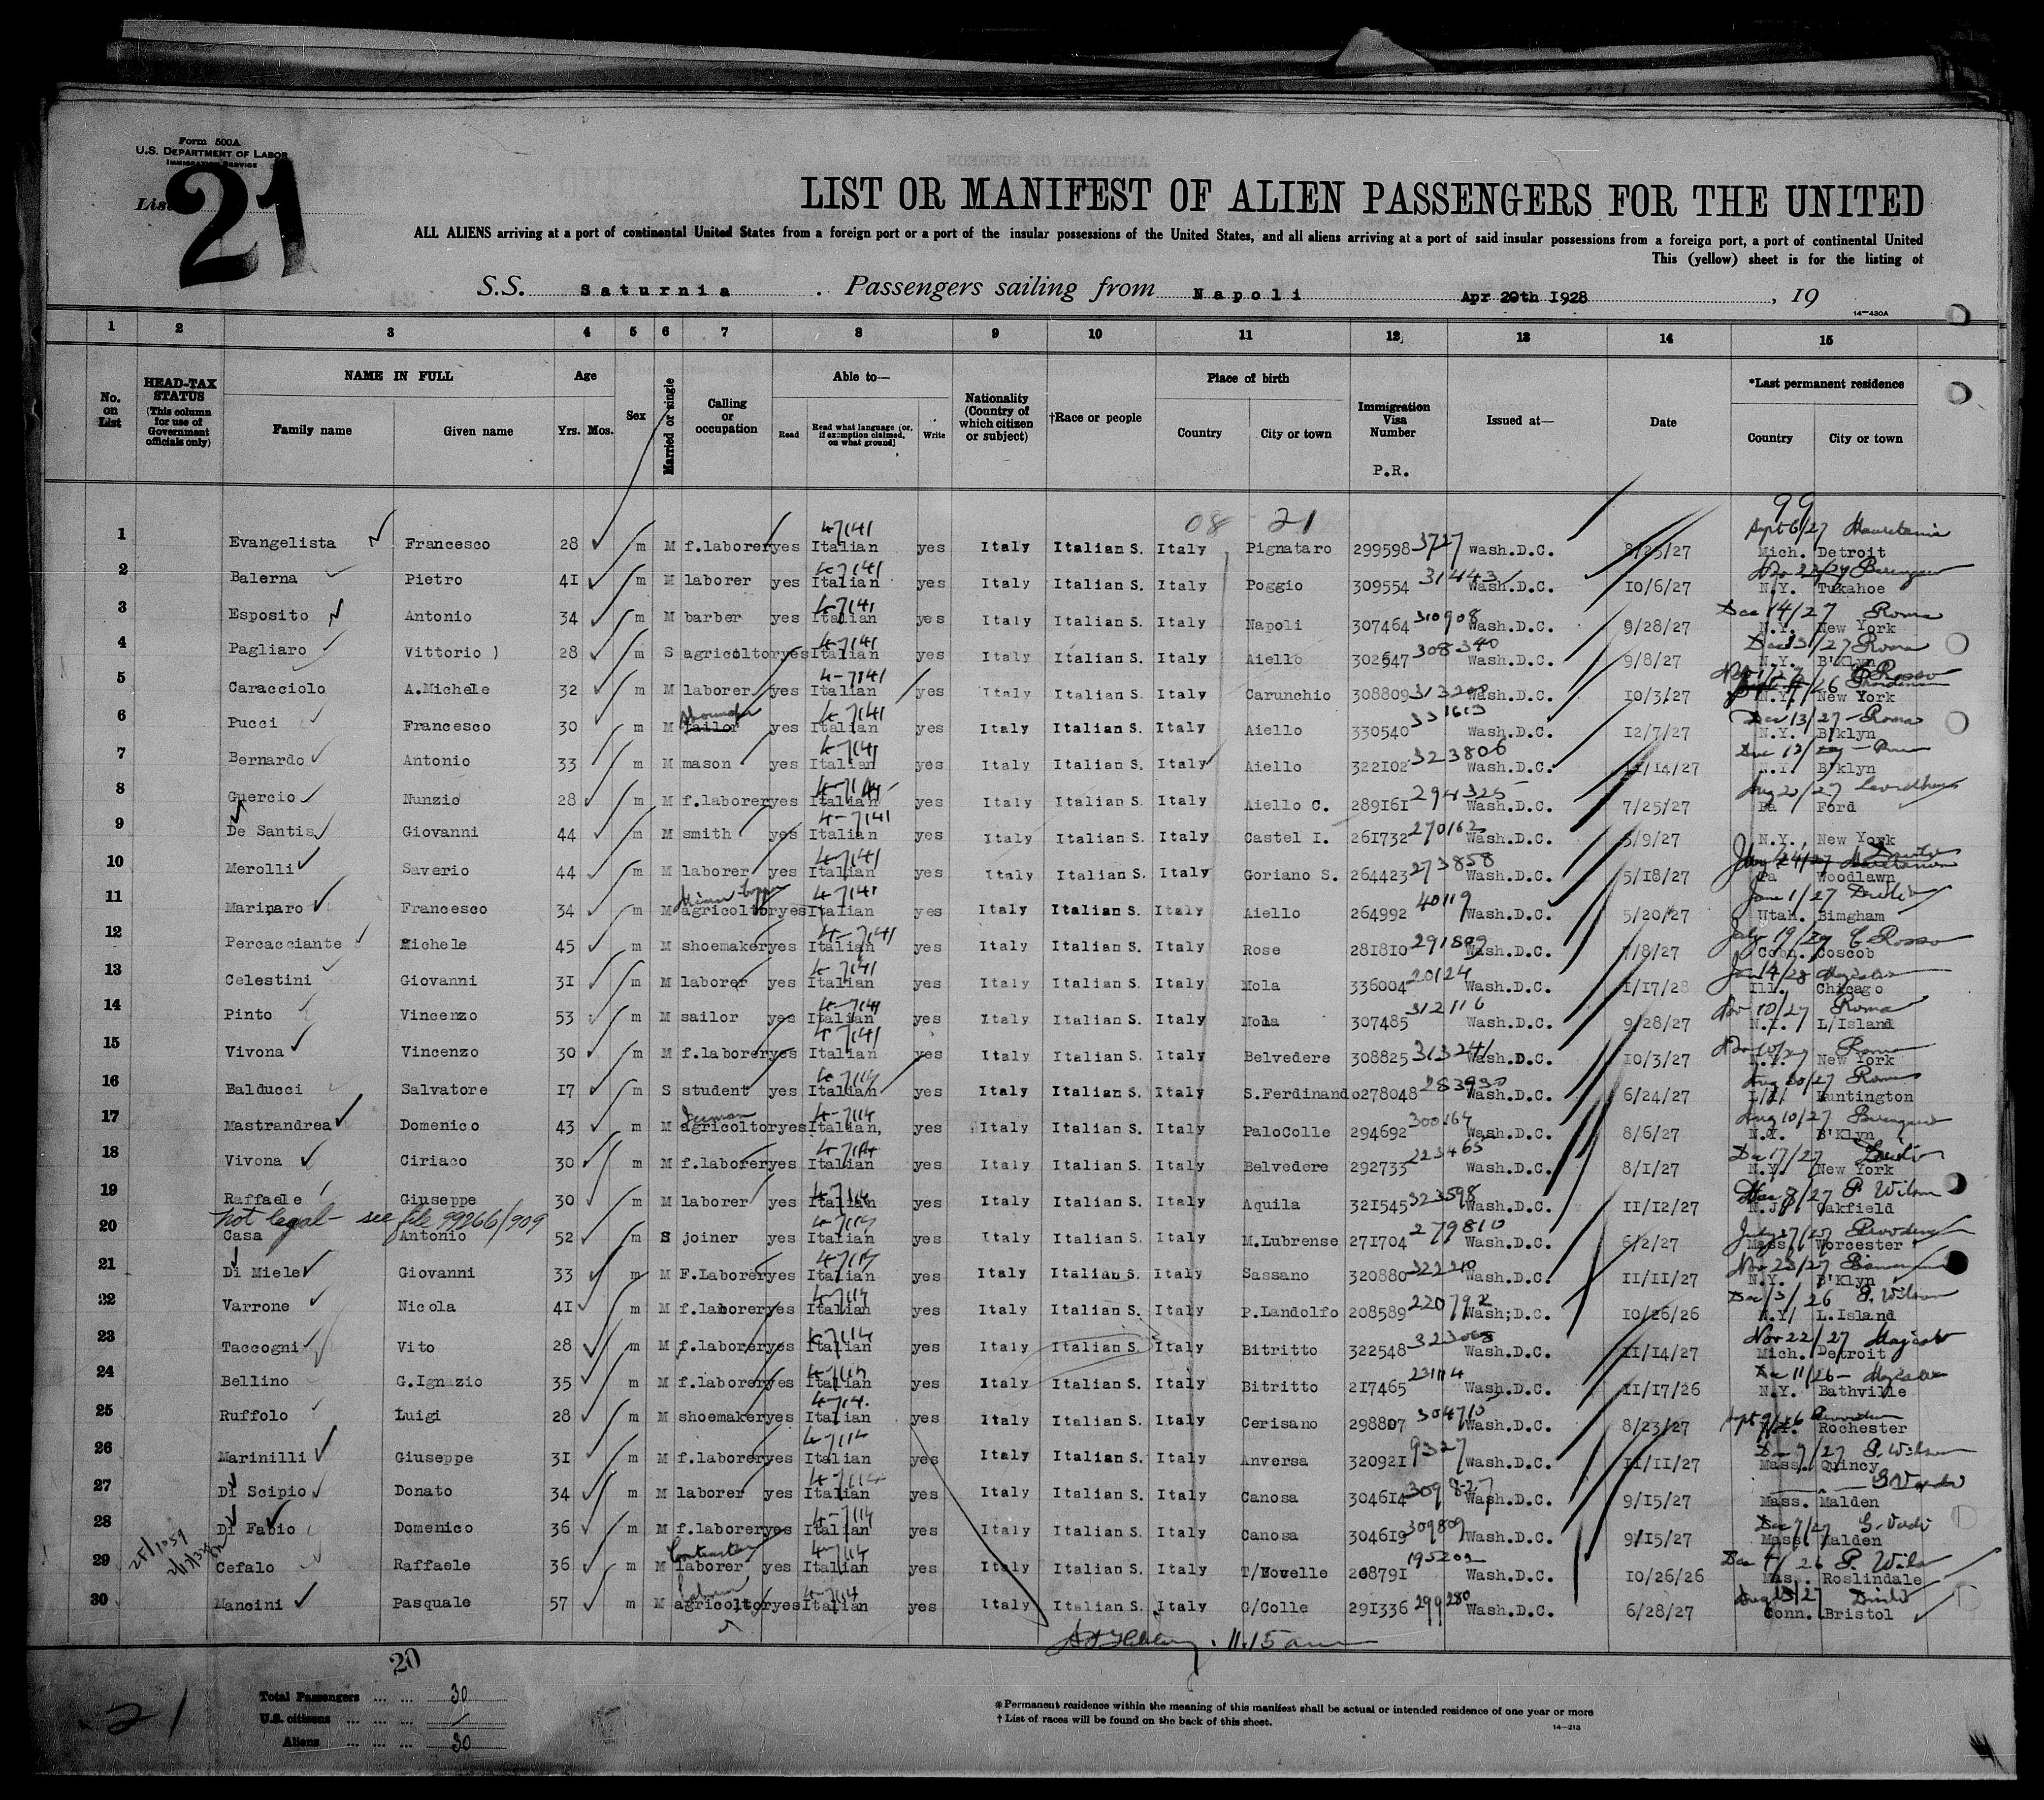 Form 500A
U.S. DEPARTMENT OF LABOR
IMMIGRATION SERVICE
List 21
LIST OR MANIFEST OF ALIEN PASSENGERS FOR THE UNITED
ALL ALIENS arriving at a port of continental United States from a foreign port or a port of the insular possessions of the United States, and all aliens arriving at a port of said insular possessions from a foreign port, a port of continental United
This (yellow) sheet is for the listing of
S.S. Saturnia . Passengers sailing from Napoli Apr 20th 1928 , 19
14-430A
1 2 3 4 5 6 7 8 9 10 11 12 13 14 15
No. on List
HEAD-TAX STATUS (This column for use of Government officials only)
NAME IN FULL Family name Given name
Age Yrs. Mos.
Sex
Married or single
Calling or occupation
Able to— Read Read what language (or, if exemption claimed, on what ground) Write
Nationality (Country of which citizen or subject)
†Race or people
Place of birth Country City or town
Immigration Visa Number P.R.
Issued at—
Date
*Last permanent residence Country City or town
08 21 99
1 Evangelista Francesco 28 m M f.laborer yes Italian yes Italy Italian S. Italy Pignataro 299598 Wash.D.C. 8/25/27 Mich. Detroit
2 Balerna Pietro 41 m M laborer yes Italian yes Italy Italian S. Italy Poggio 309554 31443 Wash.D.C. 10/6/27 N.Y. Tukahoe
3 Esposito Antonio 34 m M barber yes Italian yes Italy Italian S. Italy Napoli 307464 310908 Wash.D.C. 9/28/27 Dec 14/27 Roma N.Y. New York
4 Pagliaro Vittorio ) 28 m S agricoltor yes Italian yes Italy Italian S. Italy Aiello 302547 308340 Wash.D.C. 9/8/27 Roma N.Y. B'Klyn
5 Caracciolo A.Michele 32 m M laborer yes Italian yes Italy Italian S. Italy Carunchio 308809 Wash.D.C. 10/3/27 N.Y. New York
6 Pucci Francesco 30 m M tailor yes Italian yes Italy Italian S. Italy Aiello 330540 331613 Wash.D.C. 12/7/27 Dec 13/27 Roma N.Y. B'klyn
7 Bernardo Antonio 33 m M mason yes Italian yes Italy Italian S. Italy Aiello 322102 323806 Wash.D.C. 11/14/27 N.Y. B'klyn
8 Guercio Nunzio 28 m M f.laborer yes Italian yes Italy Italian S. Italy Aiello C. 289161 294325 Wash.D.C. 7/25/27 Pa Ford
9 De Santis Giovanni 44 m M smith yes Italian yes Italy Italian S. Italy Castel I. 261732 270162 Wash.D.C. 5/9/27 N.Y. New York
10 Merolli Saverio 44 m M laborer yes Italian yes Italy Italian S. Italy Goriano S. 264423 273858 Wash.D.C. 5/18/27 Pa Woodlawn
11 Marinaro Francesco 34 m M agricoltor yes Italian yes Italy Italian S. Italy Aiello 264992 40119 Wash.D.C. 5/20/27 Utah. Bimgham
12 Percacciante Michele 45 m M shoemaker yes Italian yes Italy Italian S. Italy Rose 281810 291809 Wash.D.C. 7/8/27 C Rosso Conn. Coscob
13 Celestini Giovanni 31 m M laborer yes Italian yes Italy Italian S. Italy Mola 336004 20124 Wash.D.C. 1/17/28 Ill. Chicago
14 Pinto Vincenzo 53 m M sailor yes Italian yes Italy Italian S. Italy Mola 307485 312116 Wash.D.C. 9/28/27 Nov 10/27 Roma N.Y. L/Island
15 Vivona Vincenzo 30 m M f.laborer yes Italian yes Italy Italian S. Italy Belvedere 308825 313241 Wash.D.C. 10/3/27 Nov 10/27 Roma N.Y. New York
16 Balducci Salvatore 17 m S student yes Italian yes Italy Italian S. Italy S.Ferdinando 278048 283930 Wash.D.C. 6/24/27 Roma L/I/ Huntington
17 Mastrandrea Domenico 43 m M agricoltor yes Italian, yes Italy Italian S. Italy PaloColle 294692 300164 Wash.D.C. 8/6/27 Aug 10/27 N.Y. B'Klyn
18 Vivona Ciriaco 30 m M f.laborer yes Italian yes Italy Italian S. Italy Belvedere 292733 223465 Wash.D.C. 8/1/27 Dec 17/27 N.Y. New York
19 Raffaele Giuseppe 30 m M laborer yes Italian yes Italy Italian S. Italy Aquila 321545 323598 Wash.D.C. 11/12/27 P. Wilson N.J. Oakfield
not legal - see file 99266/909
20 Casa Antonio 52 m S joiner yes Italian yes Italy Italian S. Italy M.Lubrense 271704 279810 Wash.D.C. 6/2/27 Mass. Worcester
21 Di Miele Giovanni 33 m M F.Laborer yes Italian yes Italy Italian S. Italy Sassano 320880 322210 Wash.D.C. 11/11/27 N.Y. B'Klyn
22 Varrone Nicola 41 m M f.laborer yes Italian yes Italy Italian S. Italy P.Landolfo 208589 220792 Wash;D.C. 10/26/26 Dec 3/26 P. Wilson N.Y/ L.Island
23 Taccogni Vito 28 m M f.laborer yes Italian yes Italy Italian S. Italy Bitritto 322548 Wash.D.C. 11/14/27 Nov 22/27 Majestic Mich. Detroit
24 Bellino G.Ignazio 35 m M f.laborer yes Italian yes Italy Italian S. Italy Bitritto 217465 231114 Wash.D.C. 11/17/26 Dec 11/26 N.Y. Bathville
25 Ruffolo Luigi 28 m M shoemaker yes Italian yes Italy Italian S. Italy Cerisano 298807 304710 Wash.D.C. 8/23/27 Rochester
26 Marinilli Giuseppe 31 m M f.laborer yes Italian yes Italy Italian S. Italy Anversa 320921 9327 Wash.D.C. 11/11/27 P. Wilson Mass. Quincy
27 Di Scipio Donato 34 m M laborer yes Italian yes Italy Italian S. Italy Canosa 304614 Wash.D.C. 9/15/27 Mass. Malden
28 Di Fabio Domenico 36 m M f.laborer yes Italian yes Italy Italian S. Italy Canosa 304619 309809 Wash.D.C. 9/15/27 Dec 7/27 Mass. Malden
29 Cefalo Raffaele 36 m M Contractor laborer yes Italian yes Italy Italian S. Italy T/Novelle 208791 195202 Wash.D.C. 10/26/26 P. Wilson Mass. Roslindale
30 Mancini Pasquale 57 m M laborer agricoltor yes Italian yes Italy Italian S. Italy C/Colle 291336 299280 Wash.D.C. 6/28/27 Conn. Bristol
11.15 am
20
21
Total Passengers ... ... 30
U.S. citizens ... ... ... /
Aliens ... ... ... 30
*Permanent residence within the meaning of this manifest shall be actual or intended residence of one year or more
†List of races will be found on the back of this sheet.
14-213